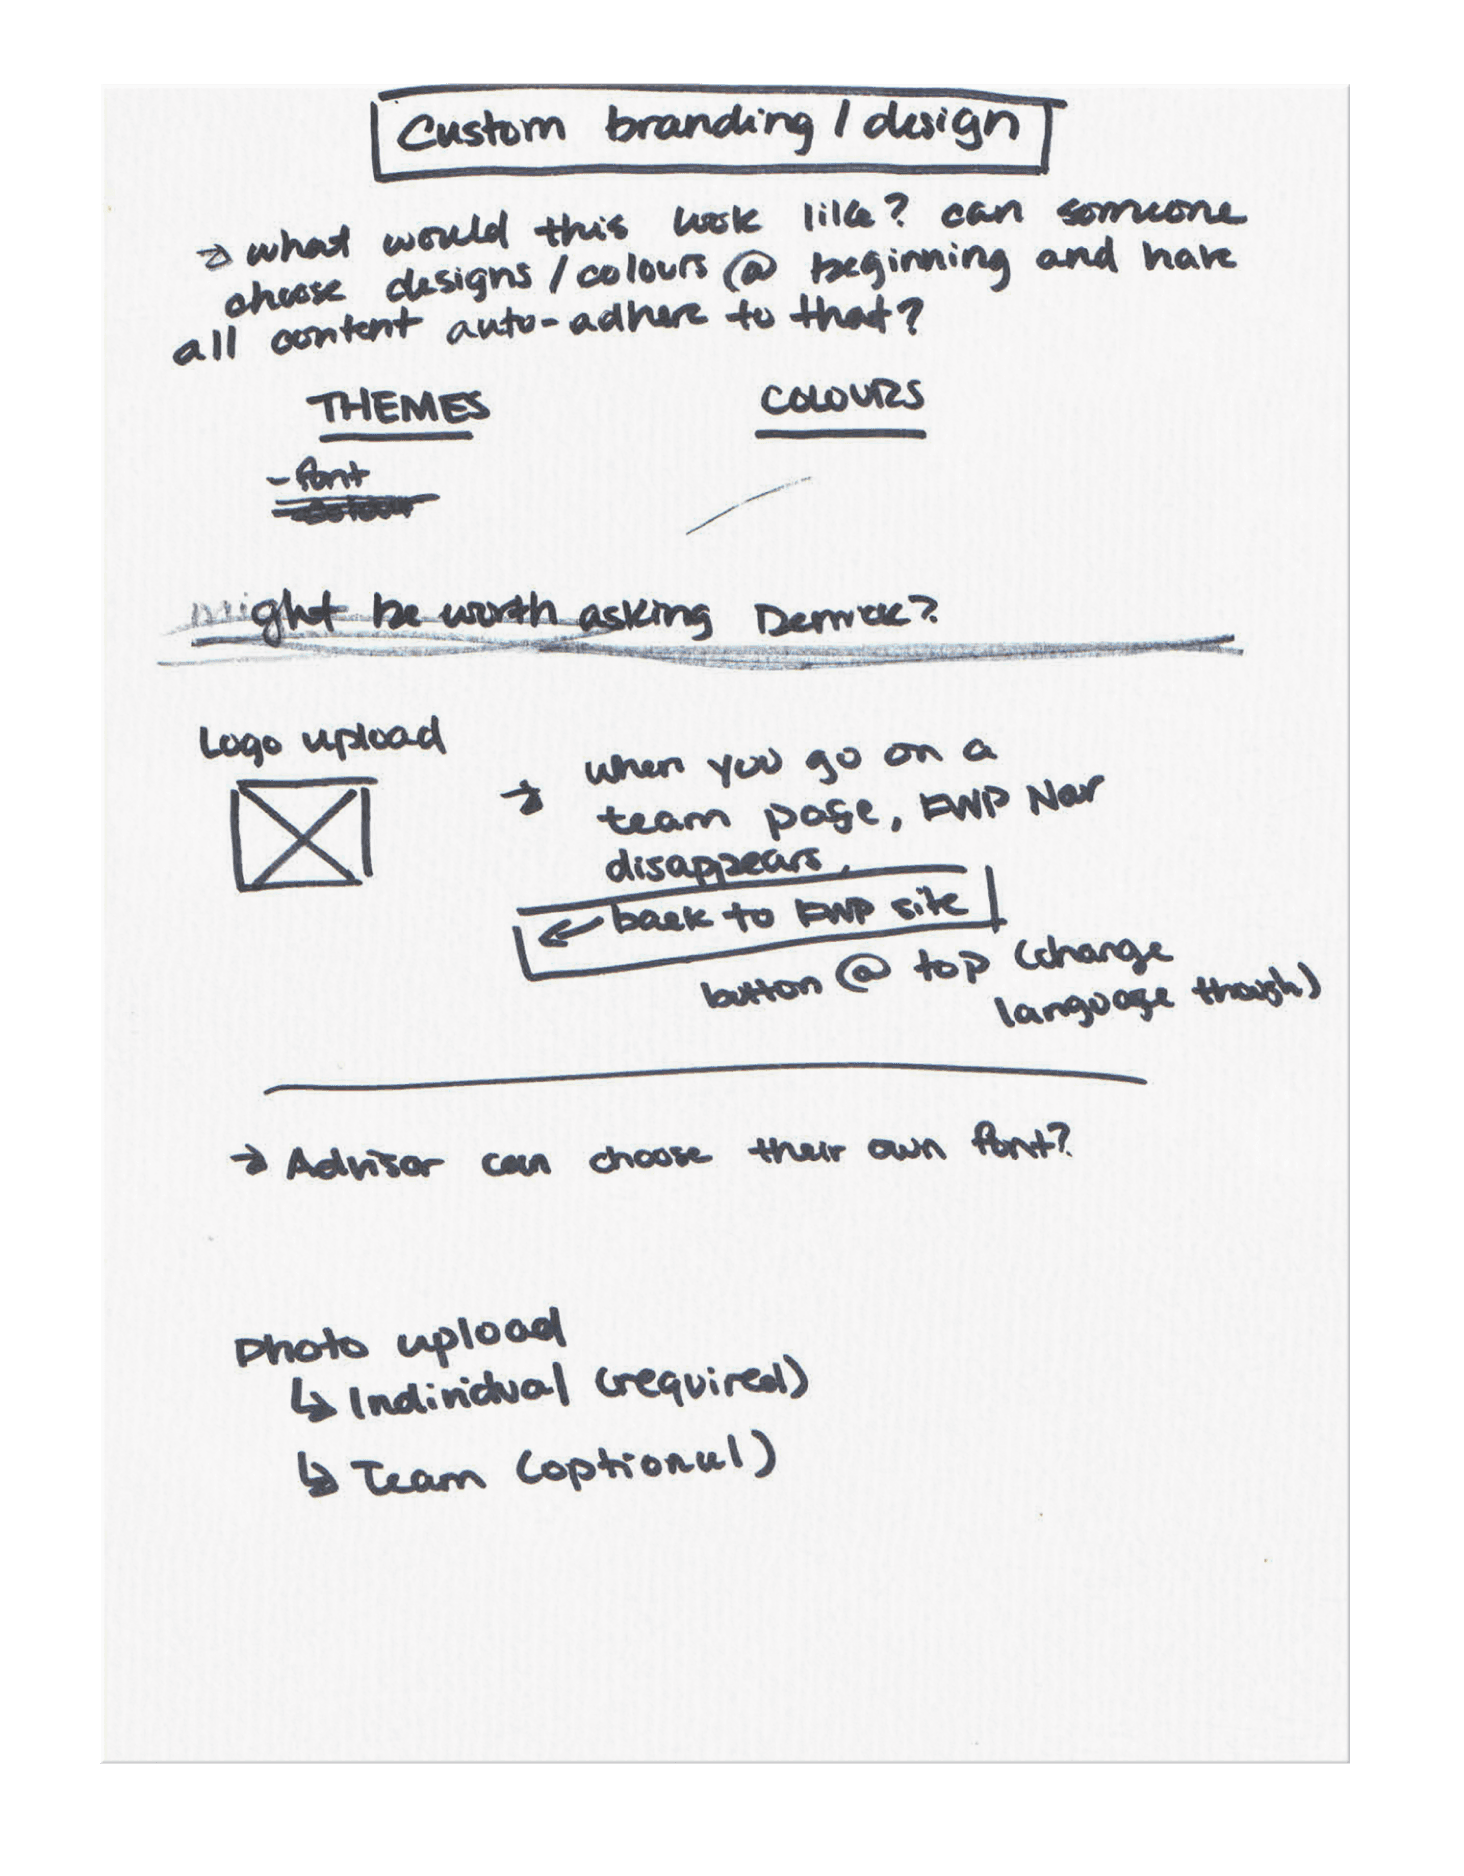 Custom branding / design
→ what would this look like? can someone
choose designs / colours @ beginning and have
all content auto-adhere to that?
THEMES
COLOURS
- font
might be worth asking Derrick?
Logo upload
→ when you go on a
team page, EWP Nav
disappears.
← back to EWP site
button @ top (change
language though)
→ Advisor can choose their own font?
Photo upload
↳ Individual (required)
↳ Team (optional)